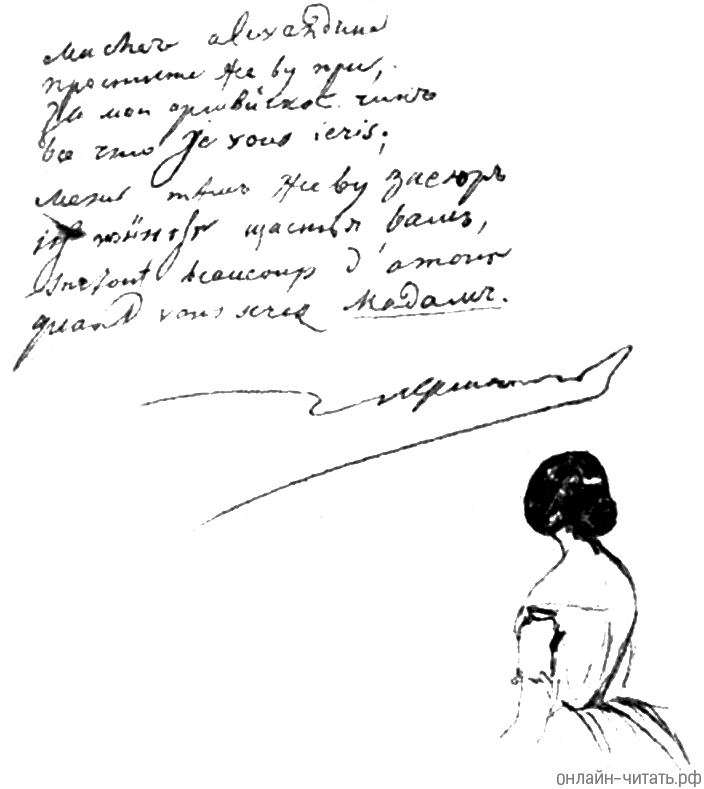 Ma chère Alexandrine
Простите же ву при,
За мой армейский чинъ
Все что je vous écris;
Меж тем же ву засюръ
Ich wünsche счастья вамъ,
Surtout beaucoup d'amour
quand vous serez Мадамъ.
Лермонтов
онлайн-читать.рф